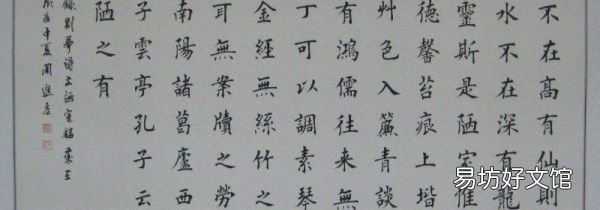 不在高有仙則
水不在深有龍
靈斯是陋室惟
德馨苔痕上堦
艸色入簾青談
有鴻儒往来無
丁可以調素琴
金經無絲竹之
耳無案牘之勞
南陽諸葛廬西
子雲亭孔子云
陋之有
錄劉夢得文陋室銘歲在
中夏周
易坊好文馆